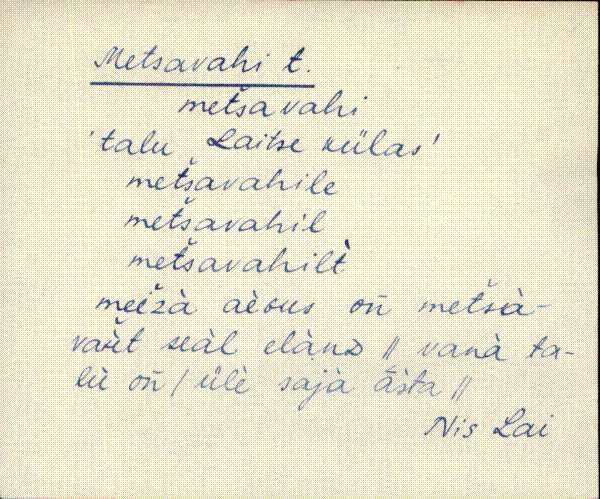 Metsavahi t.
metšavahi
'talu Laitse külas'
metšavahile
metšavahil
metšavahilt̀
meìzà on̄ metšà-
seàl elànD // vanà ta-
on̄ / ülè sajà āšta //
Nis Lai